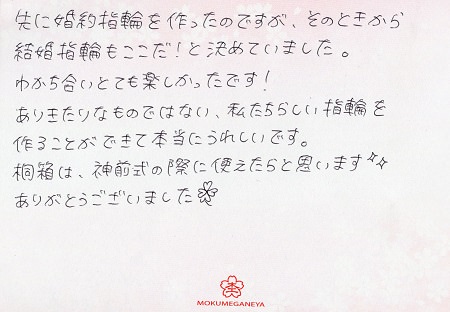 先に婚約指輪を作ったのですが、そのときから
結婚指輪もここだ!と決めていました。
わかち合いとても楽しかったです!
ありきたりなものではない、私たちらしい指輪を
作ることができて本当にうれしいです。
桐箱は、神前式の際に使えたらと思います
ありがとうございました
MOKUMEGANEYA